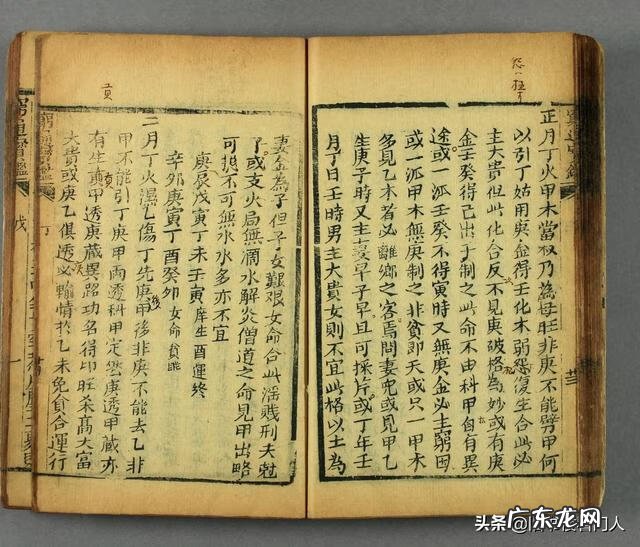 正月丁火甲木當权乃為母旺非庚不能劈甲何
以引丁姑用庚金得壬化木弱怨復生合此必
主大贵但此化合反不見庚破格為妙或有庚
金壬癸得己出于制之此命不由科甲自有異
途或一派壬癸不得寅時又無庚金必主窮困
或一派甲木無庚制之非貧即夭或只一甲木
多見乙木者必離鄉之客焉問妻兒或見甲乙
生庚子時又主妻早子早且可採片或丁年壬
月丁日壬時男主大貴女則不宜此格以土為
妻金為子但子女艱艰女命合此淫贱刑夫尅
子或支火局無滴水解炎僧道之命見甲出略
可挽不可無水水多亦不宜
庚辰戊寅丁未壬寅 库生酉運終
辛卯庚寅丁酉癸卯 女命貧賤
二月丁火濕乙傷丁先庚甲後非庚不能去乙非
甲不能引丁庚甲两透科甲定宜庚透甲藏亦
有生貢甲透庚藏異路功名得印旺杀高大富
大贵或庚乙俱透必輸情於乙未免貪合運行
窮通寶鑑
廿三
頭条
广东龙网